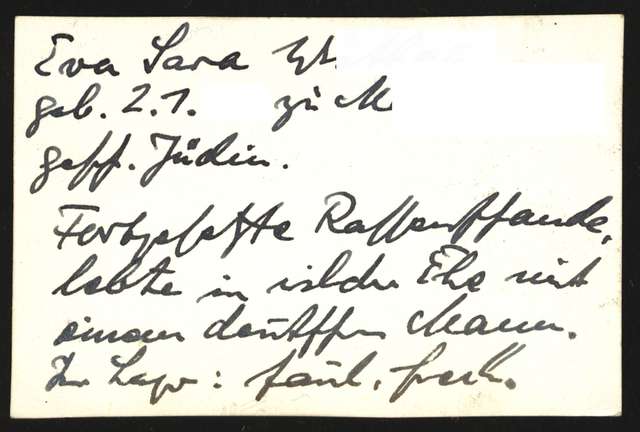 Eva Sara
geb. 2.1. zu M
gesch. Jüdin.
Fortgesetzte Rassenschande,
lebte in wilder Ehe mit
einem deutschen Mann.
Im Lager: faul, frech.